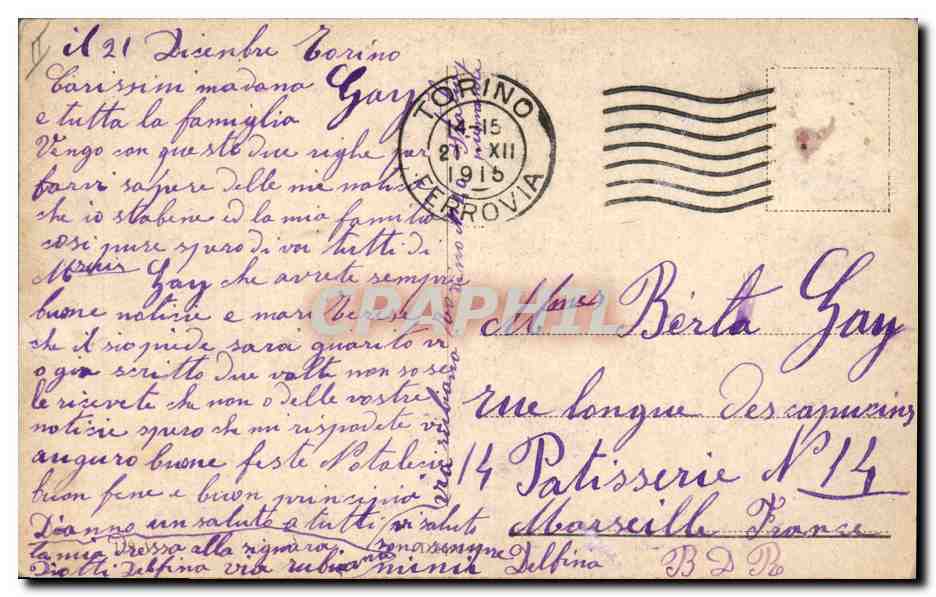 il 21 Dicenbre Torino
Carissini madana Gay
e tutta la famiglia
Vengo con queste due righe per
farvi sapere delle mie notice
che io stabene ed la mia familia
cosi pure spero di voi tutti di
Gay che avrete sempre
buone notice e
che il suo piede sara quarito vi
o gia scritto due volte non so se
le ricevete che non o delle vostre
notice spero che mi rispodete vi
auguro buone feste Natalecie
buon fene e buon principio
D'anno un saluto a tutti vi saluto
la mia dressa alla signora sono sempre
Diotti Delfina via
Delfina
TORINO
14-15
21 XII
1915
FERROVIA
CPAPHIL
Berta Gay
rue longue des capucins
14 Patisserie N 14
Marseille France
B D R